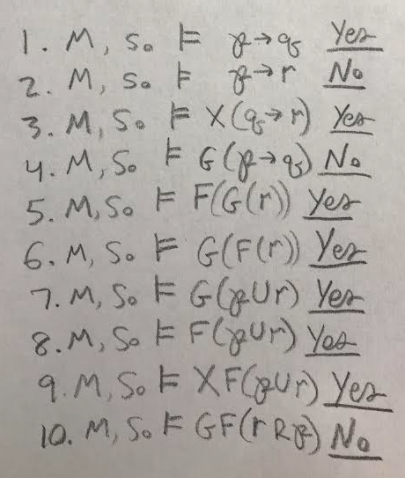 1. M, S₀ ⊨ p→q Yes
2. M, S₀ ⊨ p→r No
3. M, S₀ ⊨ X(q→r) Yes
4. M, S₀ ⊨ G(p→q) No
5. M, S₀ ⊨ F(G(r)) Yes
6. M, S₀ ⊨ G(F(r)) Yes
7. M, S₀ ⊨ G(pUr) Yes
8. M, S₀ ⊨ F(pUr) Yes
9. M, S₀ ⊨ XF(pUr) Yes
10. M, S₀ ⊨ GF(rRp) No